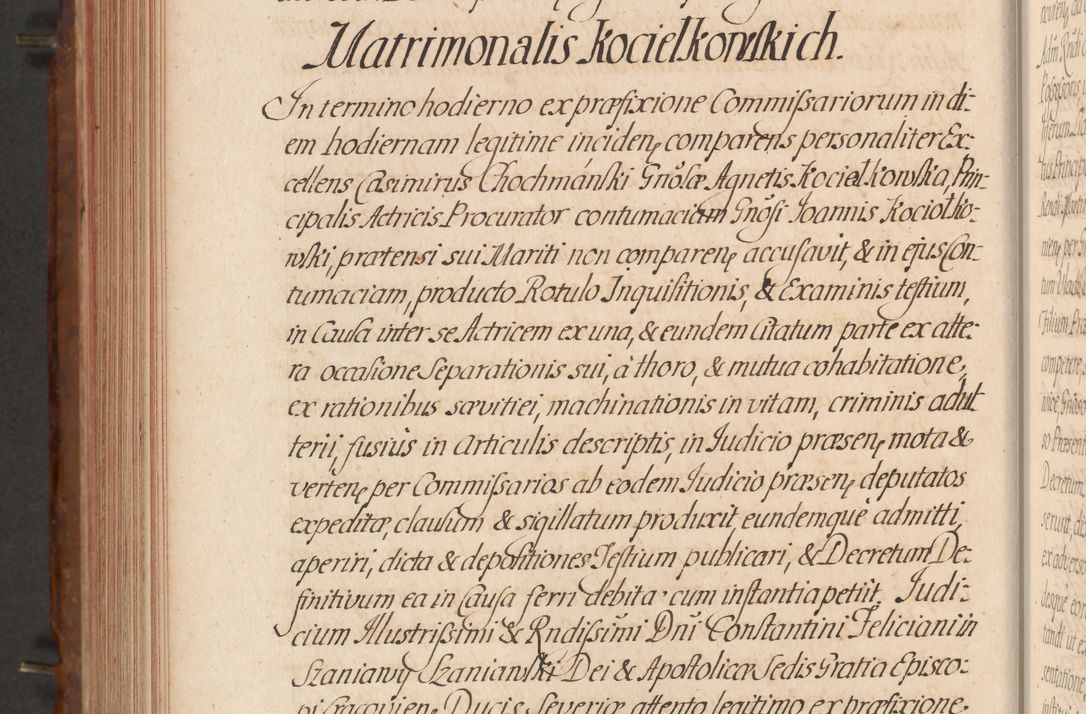 Matrimonalis Kocielkowskich.
In termino hodierno ex præfixione Commissariorum in di:
em hodiernam legitime inciden, comparens personaliter Ex:
cellens Casimirus Chochmáński Gnosæ Agnetis Kociełkowska, Prin:
cipalis Actricis Procurator contumaciam Gnosi Joannis Kociołko:
wski, prætensi sui Mariti non comparen, accusavit, & in ejus Con:
tumaciam, producto Rotulo Inquisitionis, & Examinis testium,
in Causa inter se Actricem ex una, & eundem Citatum parte ex alte:
ra occasione Separationis sui, à thoro, & mutua cohabitatione,
ex rationibus sævitiei, machinationis in vitam, criminis adul
terii, fusiùs in Articulis descriptis, in Judicio præsen, mota &
verten, per Commissarios ab eodem Judicio præsen, deputatos
expeditæ, clausum & sigillatum produxit, eundemque admitti,
aperiri, dicta & depositiones Testium publicari, & Decretum De:
finitivum ea in Causa ferri debita cum instantia petiit. Judi:
cium Illustrissimi & Rndissimi Dni Constantini Feliciani in
Szaniawy Szaniawski Dei & Apostolicæ Sedis Gratia Episco:
pi Cracovien, Ducis Severiæ attento legitimo ex præfixione,